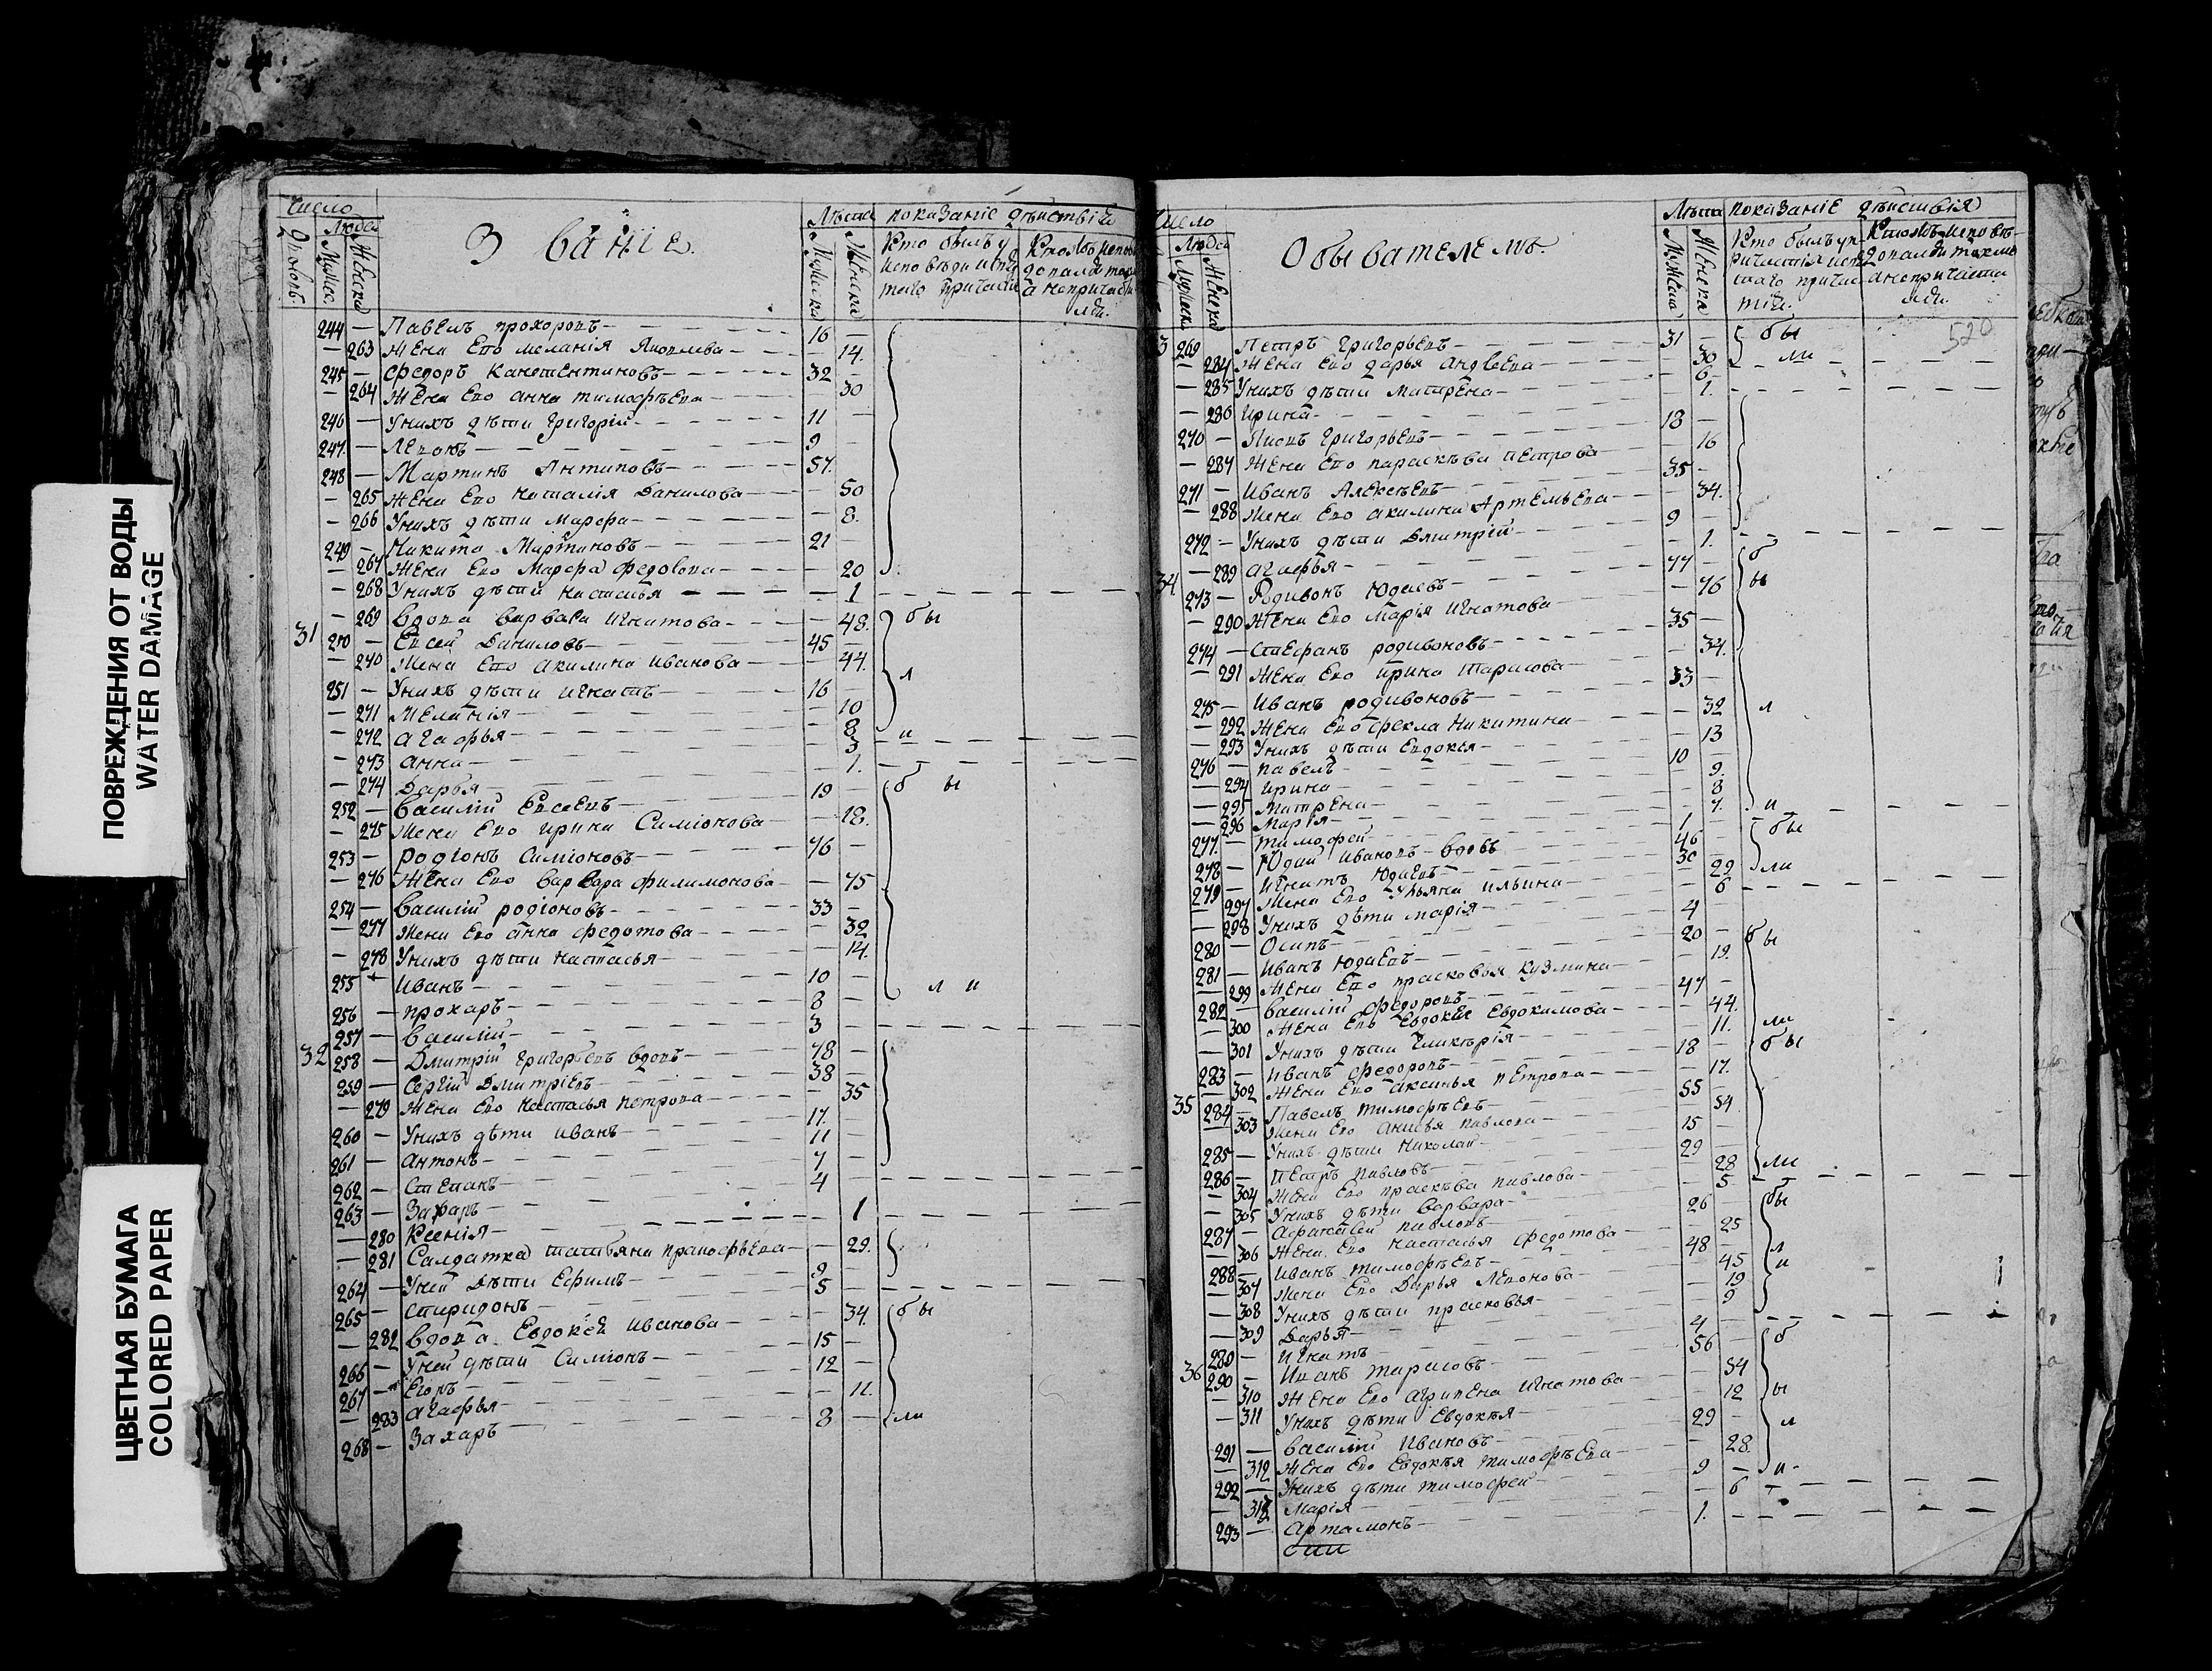 ПОВРЕЖДЕНИЯ ОТ ВОДЫ
WATER DAMAGE
ЦВЕТНАЯ БУМАГА
COLORED PAPER
Число Лѣта показаніе дѣиствія
Людей
Званіе.
244 — Павелъ прохоровъ — 16 —
— 263 Жена Его меланія Яковлева — 14.
245 — Федоръ Констентиновъ — 32 —
— 264 Жена Его анна тимофѣева — 30
246 — Унихъ дѣти Григорій — 11 —
247. — Левонъ — 9 —
248 — Мартинъ Антиповъ — 57. —
— 265 Жена Его Наталія Данилова — 50
— 266 Унихъ дѣти Марфа — 8.
249 — Никита Мартиновъ — 21 —
— 267 Жена Его Марфа Федовова — 20
— 268 Унихъ дѣти настасья — 1
— 269 вдова варвара игнатова — 48. бы
31 250 — Евсей Даниловъ — 45
— 270 Жена Его акилина иванова — 44. л
251 — Унихъ дѣти игнатъ — 16 —
— 271 Меланія — 10
— 272 агафья — 8 и
— 273 анна — 3
— 274 Дарья — 1.
252 — василій Евсеевъ — 19 — бы
— 275 Жена Его ирина Симіонова — 18.
253 — родіонъ симіоновъ — 76 —
— 276 Жена Его варвара филимонова — 75
254 — василій родіоновъ — 33 —
— 277 Жена Его анна федотова — 32
— 278 Унихъ дѣти настасья — 14.
255 — иванъ — 10 — ли
256 — прохаръ — 8 —
257 — василій — 3 —
32 258 — Дмитрій григорьевъ вдовъ — 78 —
259 — Сергій Дмитріевъ — 38 —
— 279 Жена Его Настасья петрова — 35
260 — Унихъ дѣти иванъ — 17. —
261 — антонъ — 11 —
262 — Степанъ — 7 —
263 — Захаръ — 4 —
— 280 Ксенія — 1
— 281 Салдатка татьяна — 29.
264 — Уней дѣти Ефимъ — 9 —
265 — спиридонъ — 5 —
— 282 вдова Евдокея иванова — 34. бы
266 — Уней дѣти Симіонъ — 15 —
267 — Егоръ — 12 —
— 283 агафья — 11.
268 — Захаръ — 8 — ли
Число Лѣта показаніе дѣиствія
Людей
Обывателемъ.
520
33 269 Петръ григорьевъ — 31 — бы
— 284 Жена Его дарья — 30 ли
— 285 Унихъ дѣти Матрена — 6
— 286 ирина — 1.
270 — григорьевъ — 18 —
— 287 Жена Его параскѣва петрова — 16
271 — иванъ Алексѣевъ — 35 —
— 288 Жена Его акилина Артемьева — 34.
272 — Унихъ дѣти Дмитрій — 9
— 289 агафья — 1.
34 273 — Родивонъ Юдаевъ — 77 — б
— 290 Жена Его Марія игнатова — 76 ы
274 — Стефанъ родивоновъ — 35 —
— 291 Жена Его ирина тарасова — 34.
275 — иванъ родивоновъ — 33 —
— 292 Жена Его фекла никитина — 32 л
— 293 Унихъ дѣти Евдокея — 13
276 — павелъ — 10 —
— 294 ирина — 9.
— 295 Матрена — 8
— 296 Марія — 7. и
277. — тимофей — 1
278 — Юдай ивановъ вдовъ — 46 — бы
279 — игнатъ Юдаевъ — 30 —
— 297 Жена Его Ульяна ильина — 29 ли
— 298 Унихъ дѣти марія — 6
280 — Осипъ — 4
281 — иванъ Юдаевъ — 20 — бы
— 299 Жена Его прасковья кузмина — 19.
282 — василій федоровъ — 47 —
— 300 Жена Его Евдокея Евдокимова — 44.
— 301 Унихъ дѣти гликѣрія — 11. ли
283 — иванъ федоровъ — 18 — бы
— 302 Жена Его аксинья петрова — 17.
35 284 — Павелъ тимофѣевъ — 55 —
— 303 Жена Его анисья павлова — 54
285 — Унихъ дѣти николай — 15 —
286 — Петръ павловъ — 29
— 304 Жена Его праскѣва павлова — 28 ли
— 305 Унихъ дѣти варвара — 5
287 — Афанасей павловъ — 26 бы
— 306 Жена Его настасья федотова — 25
288 — иванъ тимофѣевъ — 48 л
— 307 Жена Его Дарья Левонова — 45 и
— 308 Унихъ дѣти прасковья — 19
— 309 Дарья — 9
289 — игнатъ — 4
36 290 — иванъ тарасовъ — 56 б
— 310 Жена Его агрипена игнатова — 54
— 311 Унихъ дѣти Евдокѣя — 12 ы
291 — василій ивановъ — 29 — л
— 312 Жена Его Евдокѣя тимофѣева — 28.
292 — Унихъ дѣти тимофей — 9 — и
— 313 Марія — 6
293 — Артамонъ — 1.